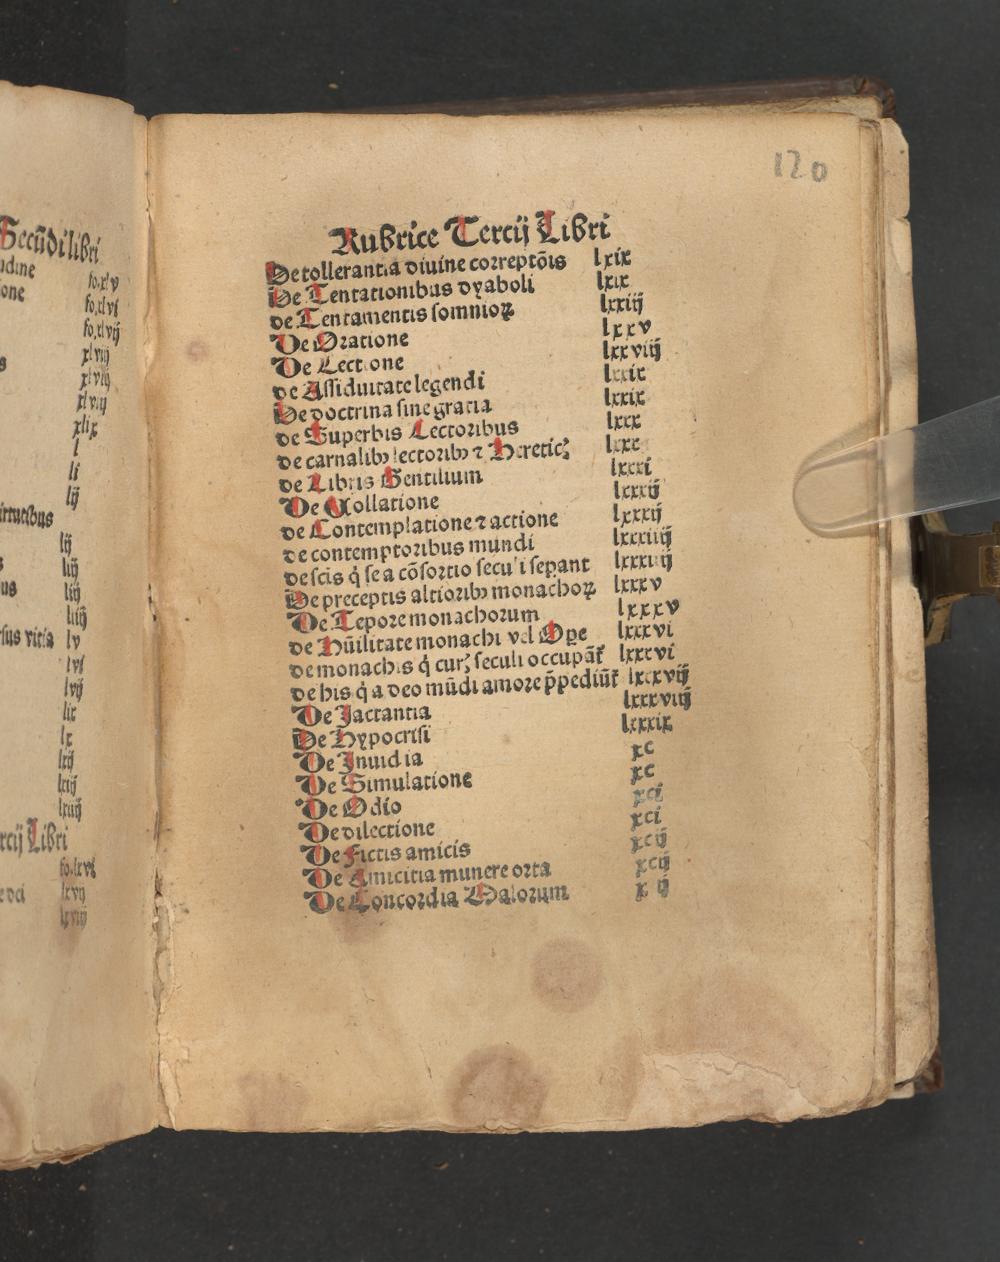 Secūdi libri
udine fo.xlv
one fo.xlvi
fo.xlvij
xlviij
s xlviij
xlviij
xlix
l
li
lij
irtutibus
lij
s liij
us liij
liiij
rsus vitia lv
lvi
lvij
lix
lx
lxij
lxiij
lxiiij
rcij Libri
fo.lxvi
e dei lxvij
lxviij
120
Rubrice Tercij Libri
De tollerantia diuine correptōis lxix
De Tentationibus dyaboli lxix
de Tentamentis somnioꝝ lxxiij
De Oratione lxxv
De Lectione lxxviij
de Assiduitate legendi lxxix
De doctrina sine gratia lxxix
de Superbis Lectoribus lxxx
de carnalibꝫ lectoribꝫ ⁊ Heretic̉ lxxx
de Libris Gentilium lxxxi
De Collatione lxxxij
de Contemplatione ⁊ actione lxxxij
de contemptoribus mundi lxxxiiij
de scis q̇ se a cōsortio seculi sepant lxxxiiij
De preceptis altioribꝫ monachoꝝ lxxxv
De Tepore monachorum lxxxv
de Hūilitate monachi vel Ope lxxxvi
de monachis q̇ cur̉ seculi occupāt̉ lxxxvi
de his q̇ a deo mūdi amore p̄pediūt̉ lxxxvij
De Jactantia lxxxviij
De Hypocrisi lxxxix
De Inuidia xc
De Simulatione xc
De Odio xci
De dilectione xci
De Fictis amicis xcij
De Amicitia munere orta xcij
De Concordia Malorum x ij